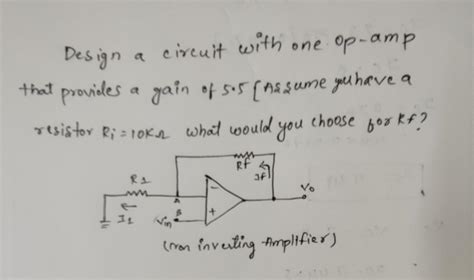 Design a circuit with one op-amp
that provides a gain of 5.5 [Assume you have a
resistor Ri = 10KΩ what would you choose for Rf?
Rf
If
R1
A
Vo
-
B
I1
Vin
+
(non inverting Amplifier)